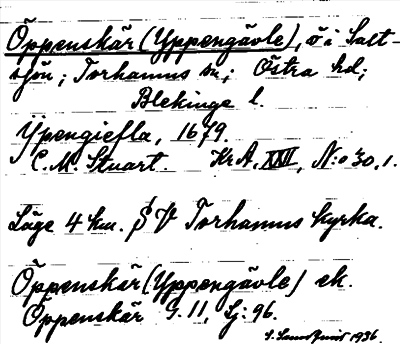 Öppenskär (Yppengävle), ö i Salt-
sjön; Torhamns sn; Östra hd;
Blekinge l.
Ypengiefla, 1679.
C. M. Stuart. Kr A, XXII, N:o 30, 1.
Läge 4 km. SV Torhamns kyrka.
Öppenskär (Yppengävle) ek.
Öppenskär G. 11, Lj: 96.
1936.